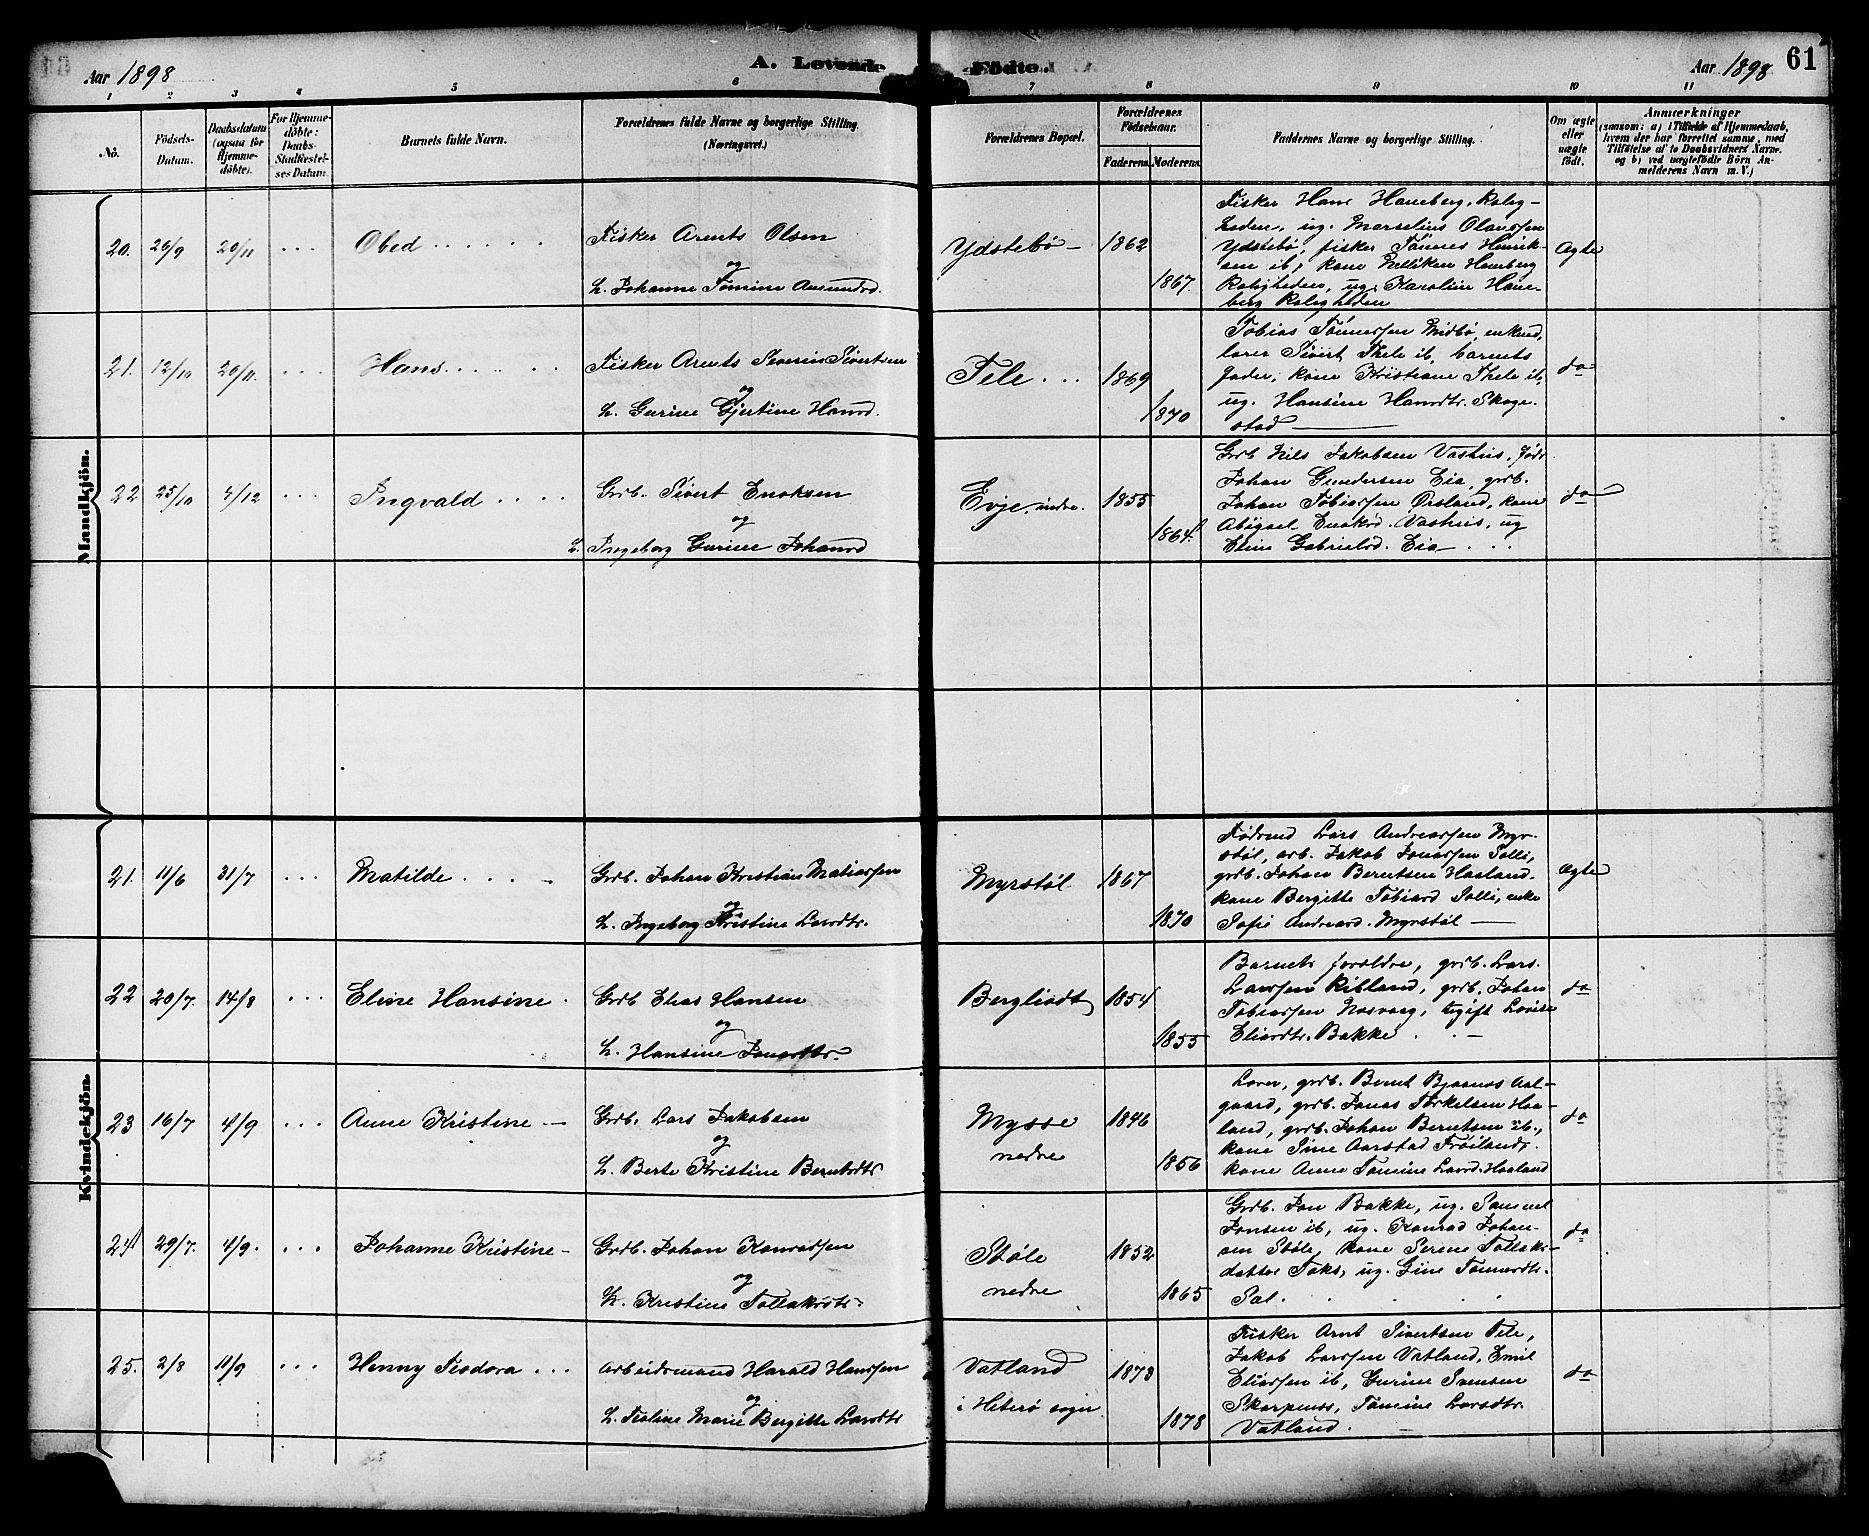 Aar 1898
A. Levende
Födte.
Aar 1898
61
1 2 3 4 5 6 7 8 9 10 11
No.
Födsels-
Datum.
Daabsdatum
(ogsaa for
Hjemme-
döbte).
For Hjemme-
döbte:
Daabs-
Stadfæstel-
ses Datum.
Barnets fulde Navn.
Forældrenes fulde Navne og borgerlige Stilling.
(Næringsvei.)
Forældrenes Bopæl.
Forældrenes
Födselsaar.
Faderens. Moderens.
Faddernes Navne og borgerlige Stilling.
Om ægte
eller
uægte
födt.
Anmærkninger
(saasom: a) i Tilfælde af Hjemmedaab,
hvem der har forrettet samme, med
Tilföielse af to Daabsvidners Navne.
og b) ved uægtefödte Börn An-
melderens Navn m. V.)
Mandkjön.
20. 26/9 20/11 ... Obed
Fisker Arents Olsen
og
h. Johanne Tomine Aamundsd.
Ydstebö 1862
1867.
Fisker Hans Haneberg, Rolig-
heden, ug. Marselius Olaussen
Ydstebö, fisker Tönnes Henrik-
sen ib, kone Helliken Haneberg
Roligheden, ug. Karoline Hane-
berg Roligheden
Ægte
21. 12/10 20/11. ... Hans
Fisker Arents Severin Sivertsen
og
h. Gurine Gjertine Hansd.
Tele ... 1869
1870
Tobias Tönnessen Midbö, enkemd,
lærer Sivert Thele ib, barnets
fader, kone Kristiane Thele ib,
ug. Hansine Hansdtr. Skoge-
stad
do
22 25/10 4/12 ... Ingvald
Grdb. Sivert Enoksen
og
h. Ingeborg Gurine Johansd
Evje indre. 1855
1864.
Grdb Nils Jakobsen Vashus, födr.
Johan Gundersen Eia, grdb.
Johan Tobiassen Örsland, kone
Abigael Enoksd. Vashus, ug
Eline Gabrielsd. Eia
do
Kvindekjön.
21. 11/6 31/7 ... Matilde
Grdb. Johan Kristian Matiassen
og
h. Ingeborg Kristine Larsdtr.
Myrstöl 1867
1870
Födrmd Lars Andreassen Myr-
stöl, arb. Jakob Jonassen Solli,
grdb. Johan Berntsen Haaland.
kone Bergitte Tobiasd Solli, enke
Sofie Andreasd. Myrstöl
Ægte
22 20/7. 14/8 ... Eline Hansine
Grdb Elias Hansen
og
h. Hansine Jonasdtr.
Bergliodt 1854
1855
Barnets foreldre, grdb. Lars
Larssen Ribland, grdb. Johan
Tobiassen Nosvaag, ugift Lovise
Eliasdtr. Bakke
do
23 16/7 4/9 ... Anne Kristine
Grdb. Lars Jakobsen
og
h. Berte Kristine Berntsdtr
Mysse
nedre
1846
1856
Lærer, grdb. Bernt Bjaanes Aal-
gaard, grdb. Jonas Torkelsen Haa-
land, grdb. Johan Berntsen ib,
kone Sine Aarstad Fröiland,
kone Anne Tomine Larsd. Haaland
do
24 29/7. 4/9. ... Johanne Kristine
Grdb. Johan Konradsen
og
h. Kristine Tollaksdtr.
Stöle
nedre
1852
1865
Grdb. Jon Bakke, ug. Samuel
Jonsen ib, ug. Konrad Johan-
sen Stöle, kone Serine Tollaks-
datter Toks, ug. Gine Tönnesdtr.
Sæl.
do
25. 2/8 11/9 ... Henny Teodora
Arbeidsmand Harald Hanssen
og
h. Teoline Marie Bergitte Larsdtr
Vatland
i Heterö sogn
1873
1878
Fisker Arnt Sivertsen Tele,
Jakob Larssen Vatland, Emil
Eliassen ib, Gurine Svensen
Skarpenes, Tomine Larsdtr.
Vatland.
do